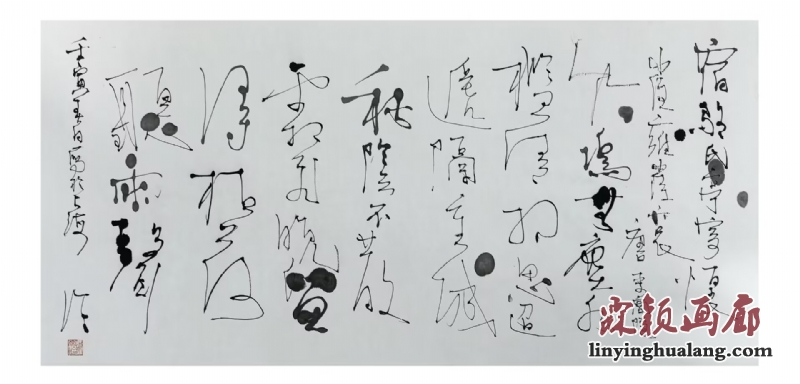 宿駱氏亭寄懷
崔雍崔衮
唐 李商隱
竹塢無塵水
檻清相思迢
遞隔重城
秋陰不散
霜飛晚留
得枯荷
聽雨聲
壬寅春日寫於上海
霖颖画廊
linyinghualang.com